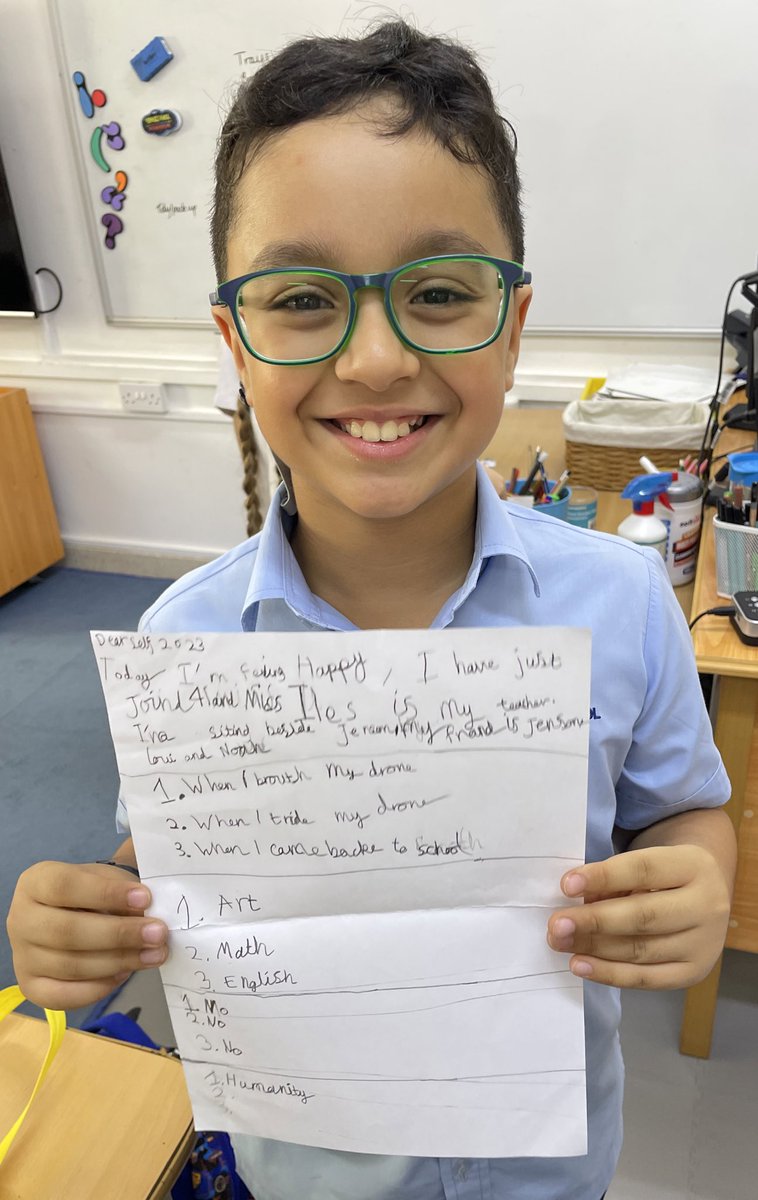 Dear self 2023
Today I'm feling Happy, I have just
Joind 4I and Miss Iles is my teacher.
I'm siting beside my friand is Jenson
Loui and Noah
1. When I brouth my drone
2. When I tride my drone
3. When I came backe to school
1. Art
2. Math
3. English
1. Mo
2. No
3. No
1. Humanity
2.
3.